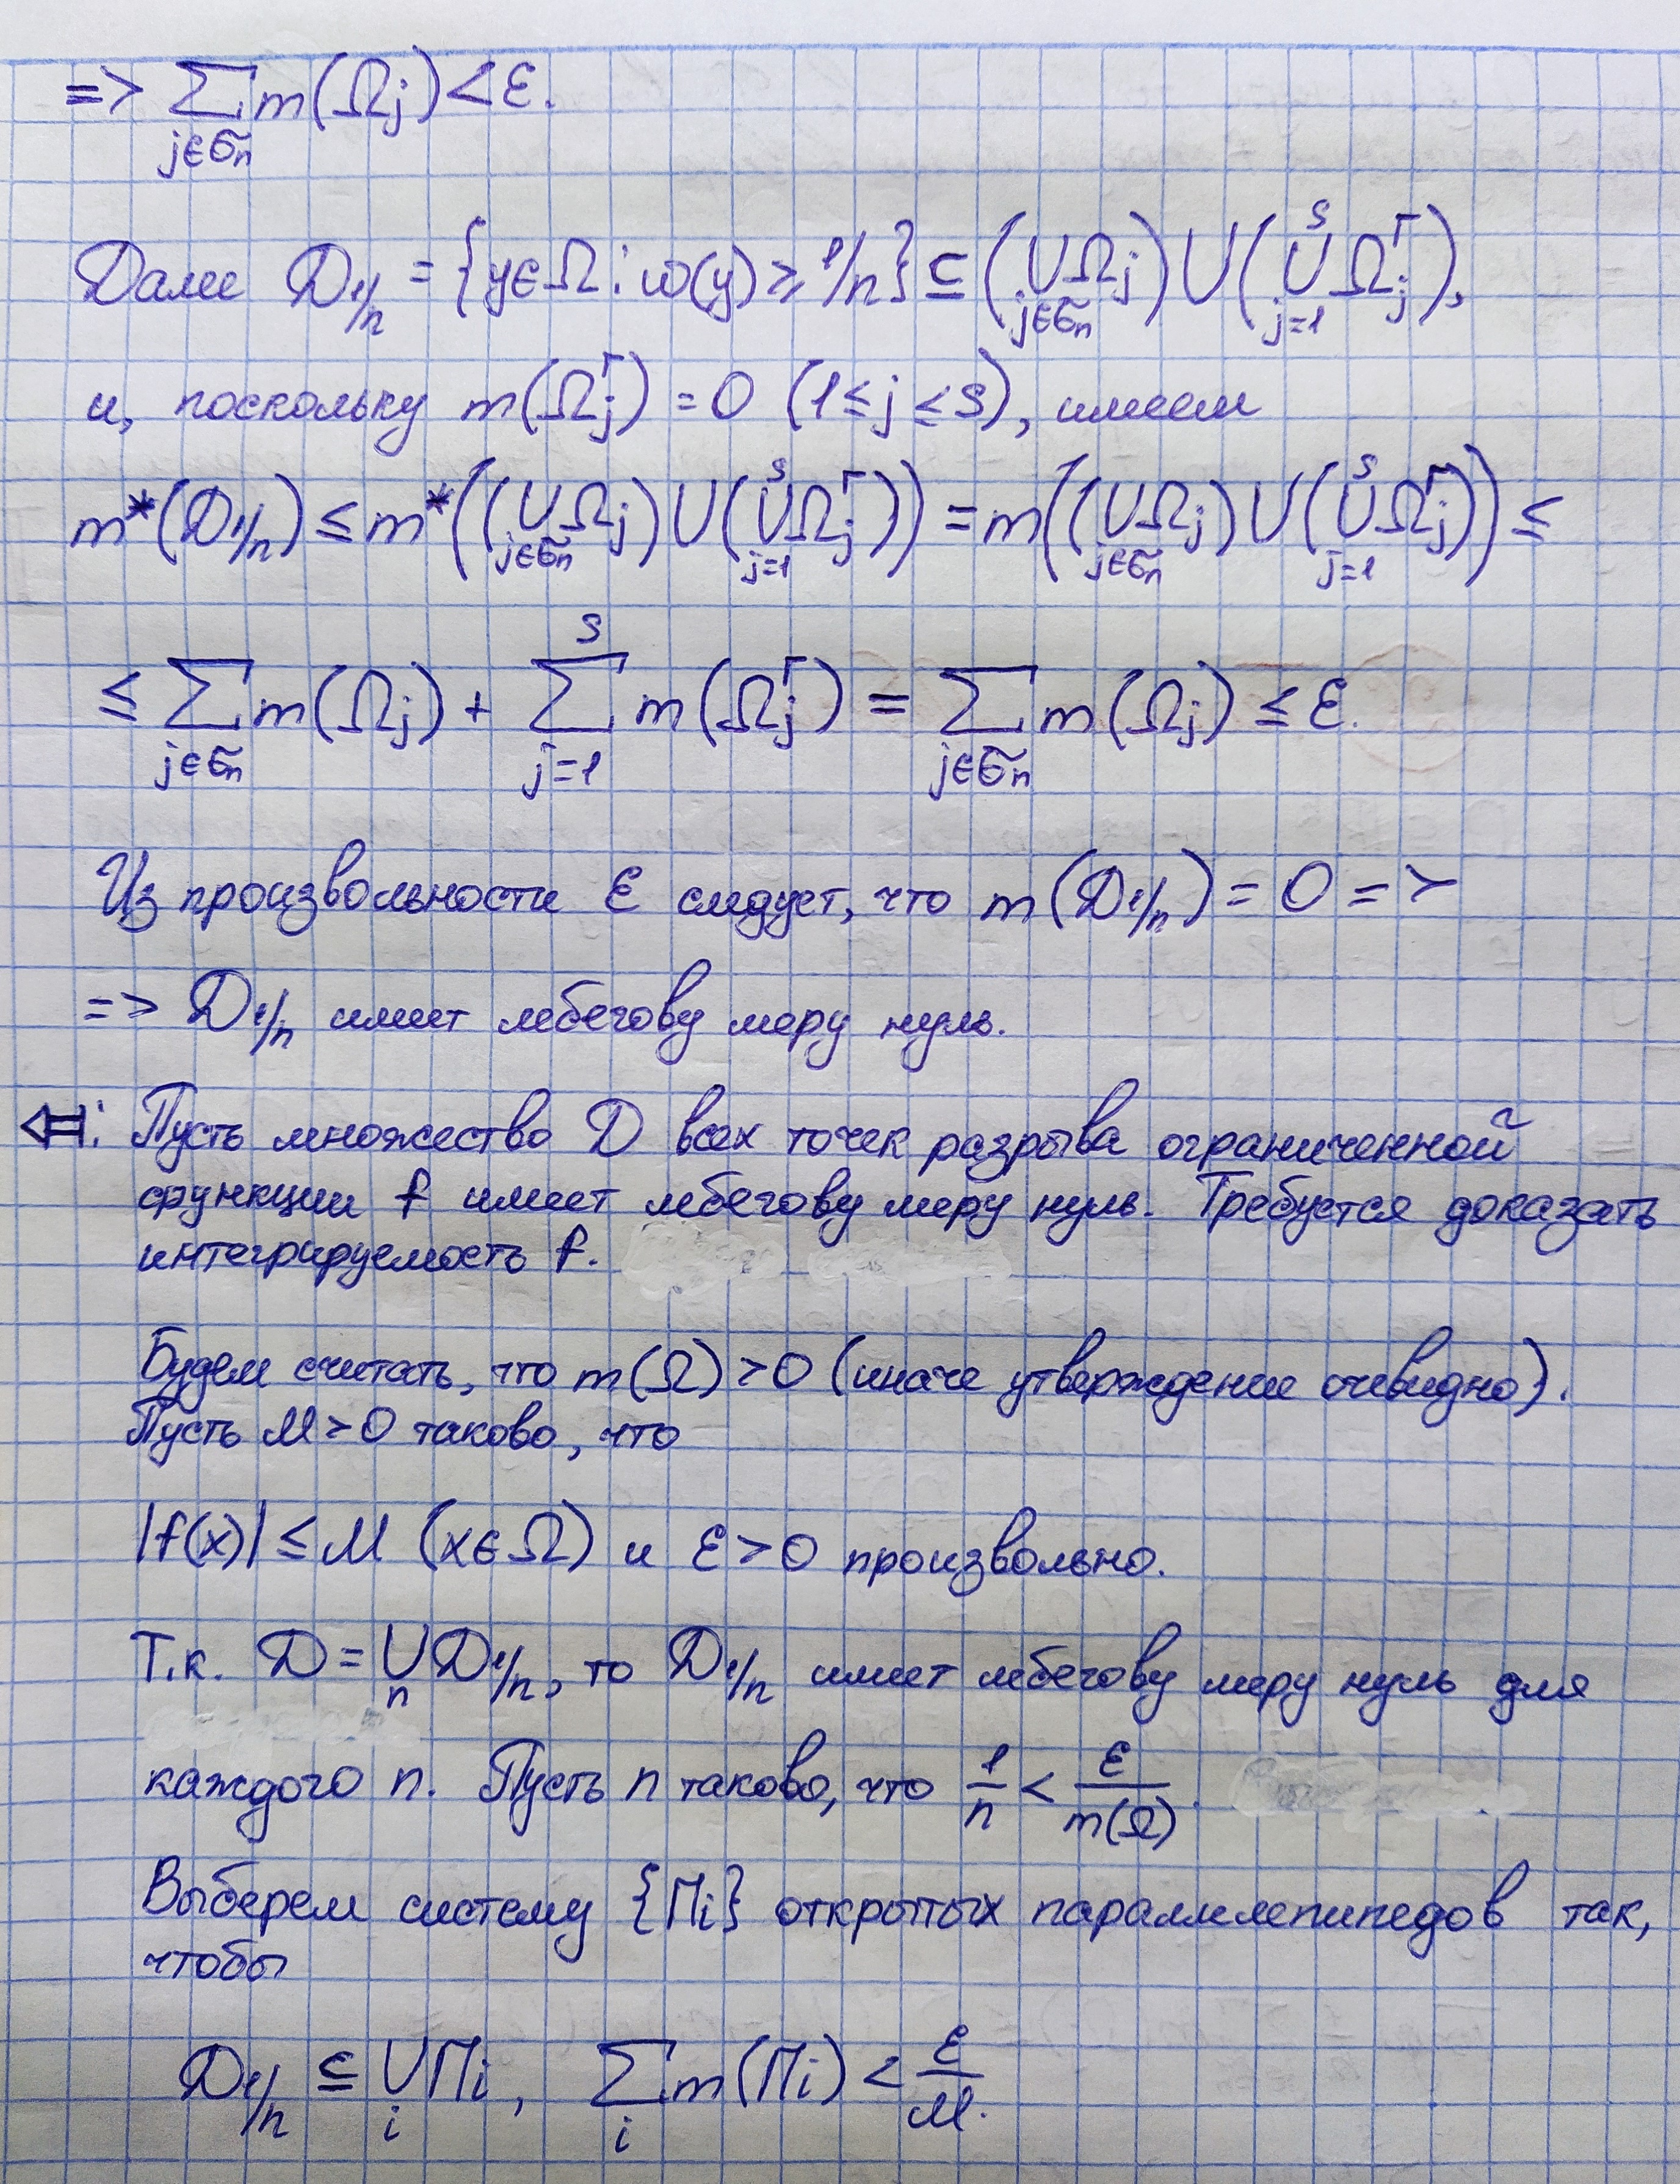 => ∑_{j∈σ_n} m(Ω_j) < ε.
Далее D_{1/n} = {y∈Ω : ω(y) ≥ 1/n} ⊆ (∪_{j∈σ_n} Ω_j) ∪ (∪_{j=1}^{s} Ω_j^Γ),
и, поскольку m(Ω_j^Γ) = 0 (1 ≤ j ≤ s), имеем
m*(D_{1/n}) ≤ m*((∪_{j∈σ_n} Ω_j) ∪ (∪_{j=1}^{s} Ω_j^Γ)) = m((∪_{j∈σ_n} Ω_j) ∪ (∪_{j=1}^{s} Ω_j^Γ)) ≤
≤ ∑_{j∈σ_n} m(Ω_j) + ∑_{j=1}^{s} m(Ω_j^Γ) = ∑_{j∈σ_n} m(Ω_j) ≤ ε.
Из произвольности ε следует, что m(D_{1/n}) = 0 =>
=> D_{1/n} имеет лебегову меру нуль.
⇐: Пусть множество D всех точек разрыва ограниченной
функции f имеет лебегову меру нуль. Требуется доказать
интегрируемость f.
Будем считать, что m(Ω) > 0 (иначе утверждение очевидно).
Пусть M > 0 таково, что
|f(x)| ≤ M (x∈Ω) и ε > 0 произвольно.
Т.к. D = ∪_n D_{1/n}, то D_{1/n} имеет лебегову меру нуль для
каждого n. Пусть n таково, что 1/n < ε/m(Ω).
Выберем систему {Π_i} открытых параллелепипедов так,
чтобы
D_{1/n} ⊆ ∪_i Π_i, ∑_i m(Π_i) < ε/M.